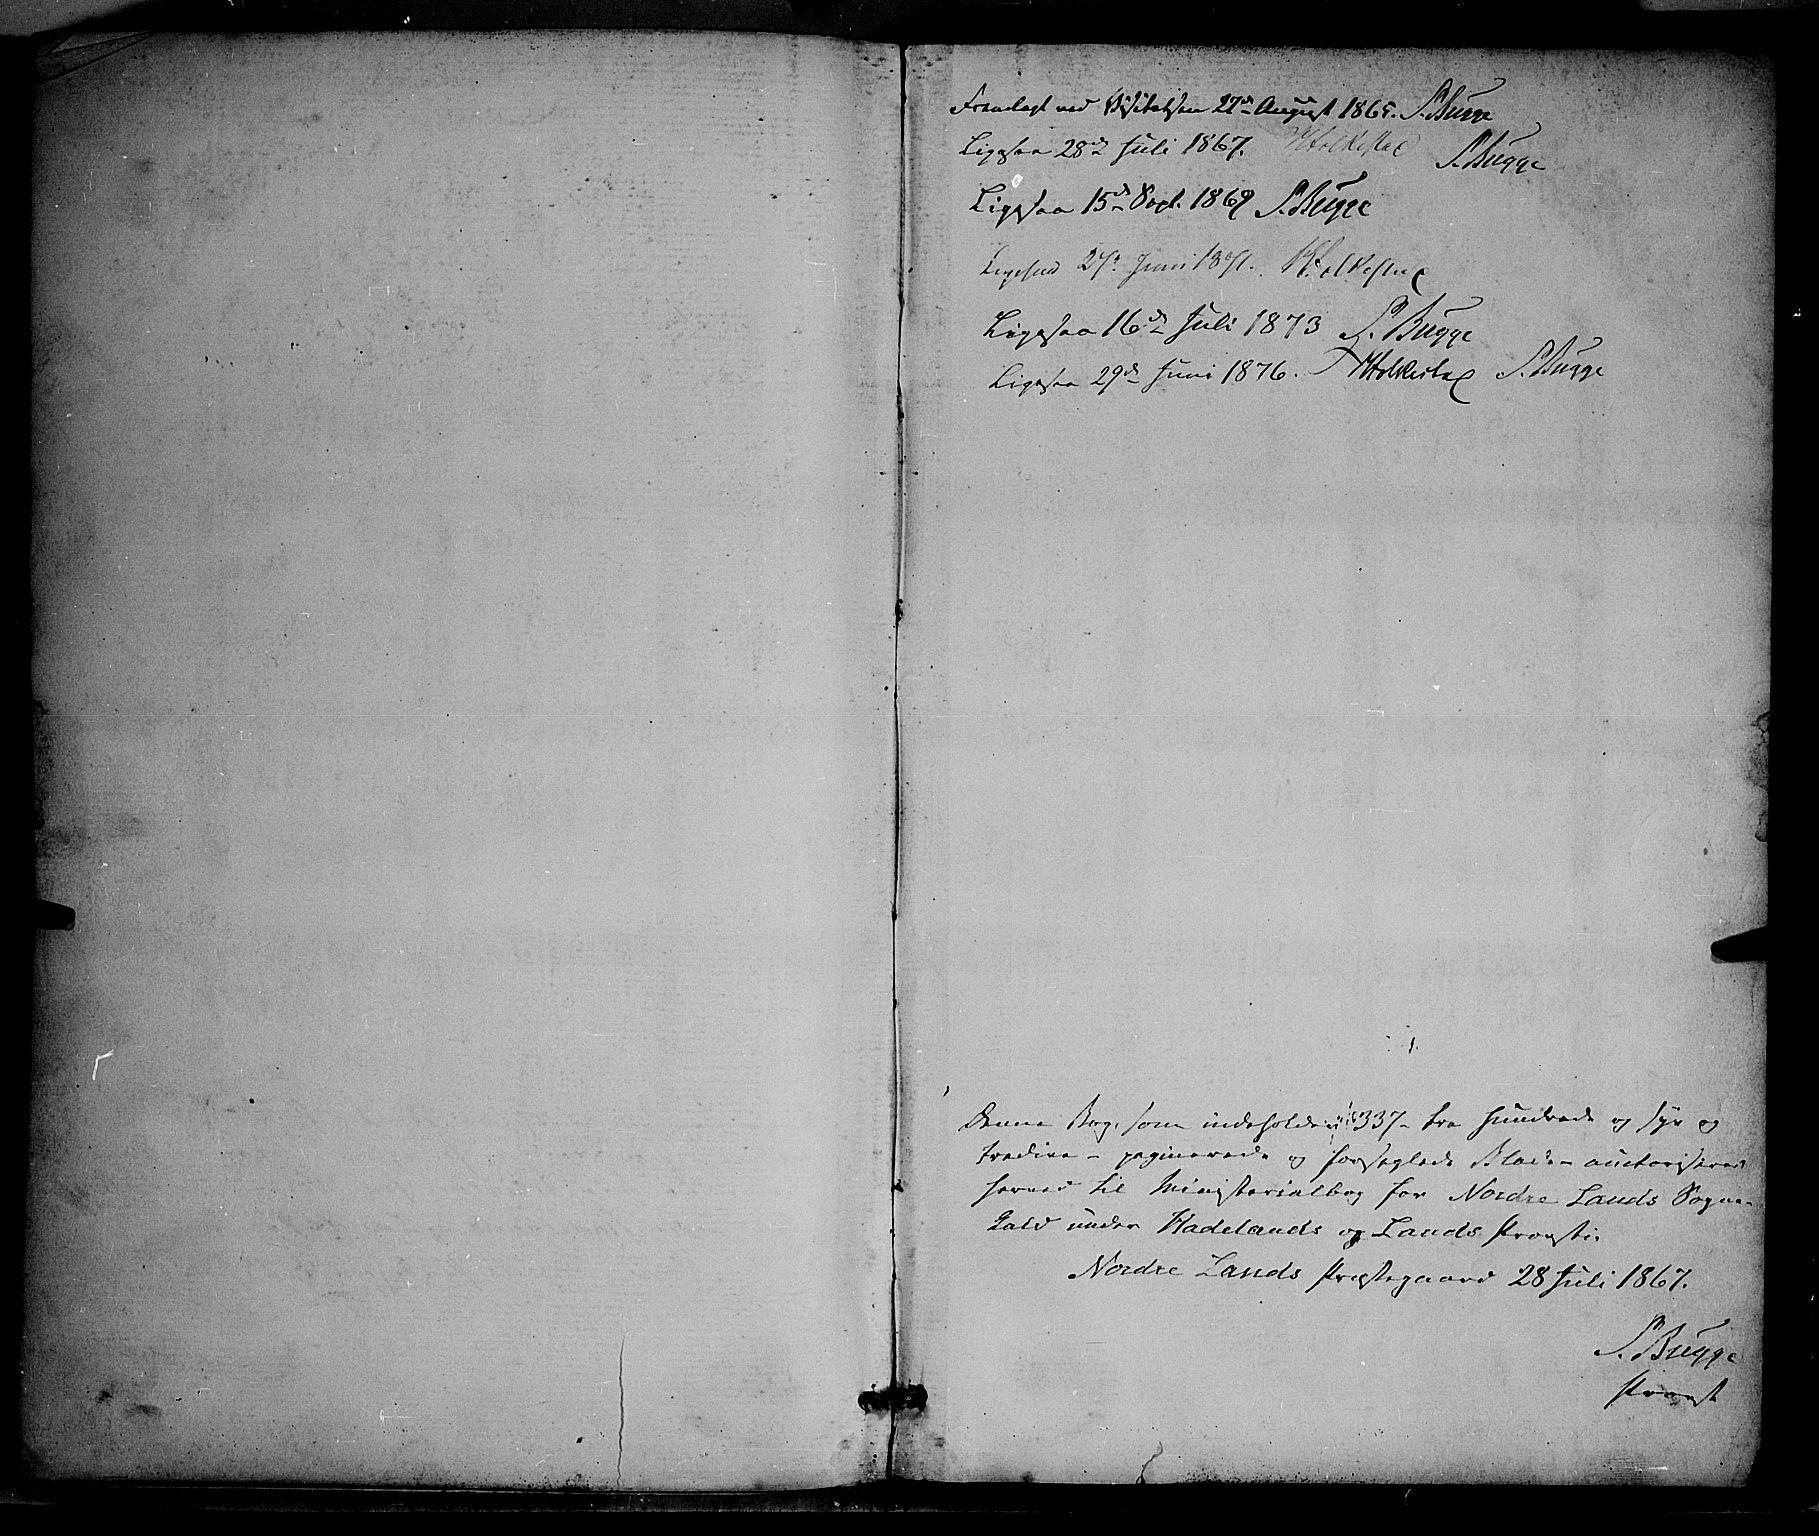 Fremlagt ved Visitatsen 27de August 1865. S. Bugge
Ligesaa 28de Juli 1867. S. Bugge
Ligesaa 15de Sept. 1869 S. Bugge
Ligesaa 27de Juni 1871.
Ligesaa 16de Juli 1873 S. Bugge
Ligesaa 29de Juni 1876. S. Bugge
Denne Bog, som indeholder 337 - tre hundrede og syv og
tredive - paginerede og forseglede Blade - auctoriseres
herved til Ministerialbog for Nordre Lands Sogne-
Kald under Hadelands og Lands Provsti.
Nordre Lands Præstegaard 28 Juli 1867.
S. Bugge
Provst